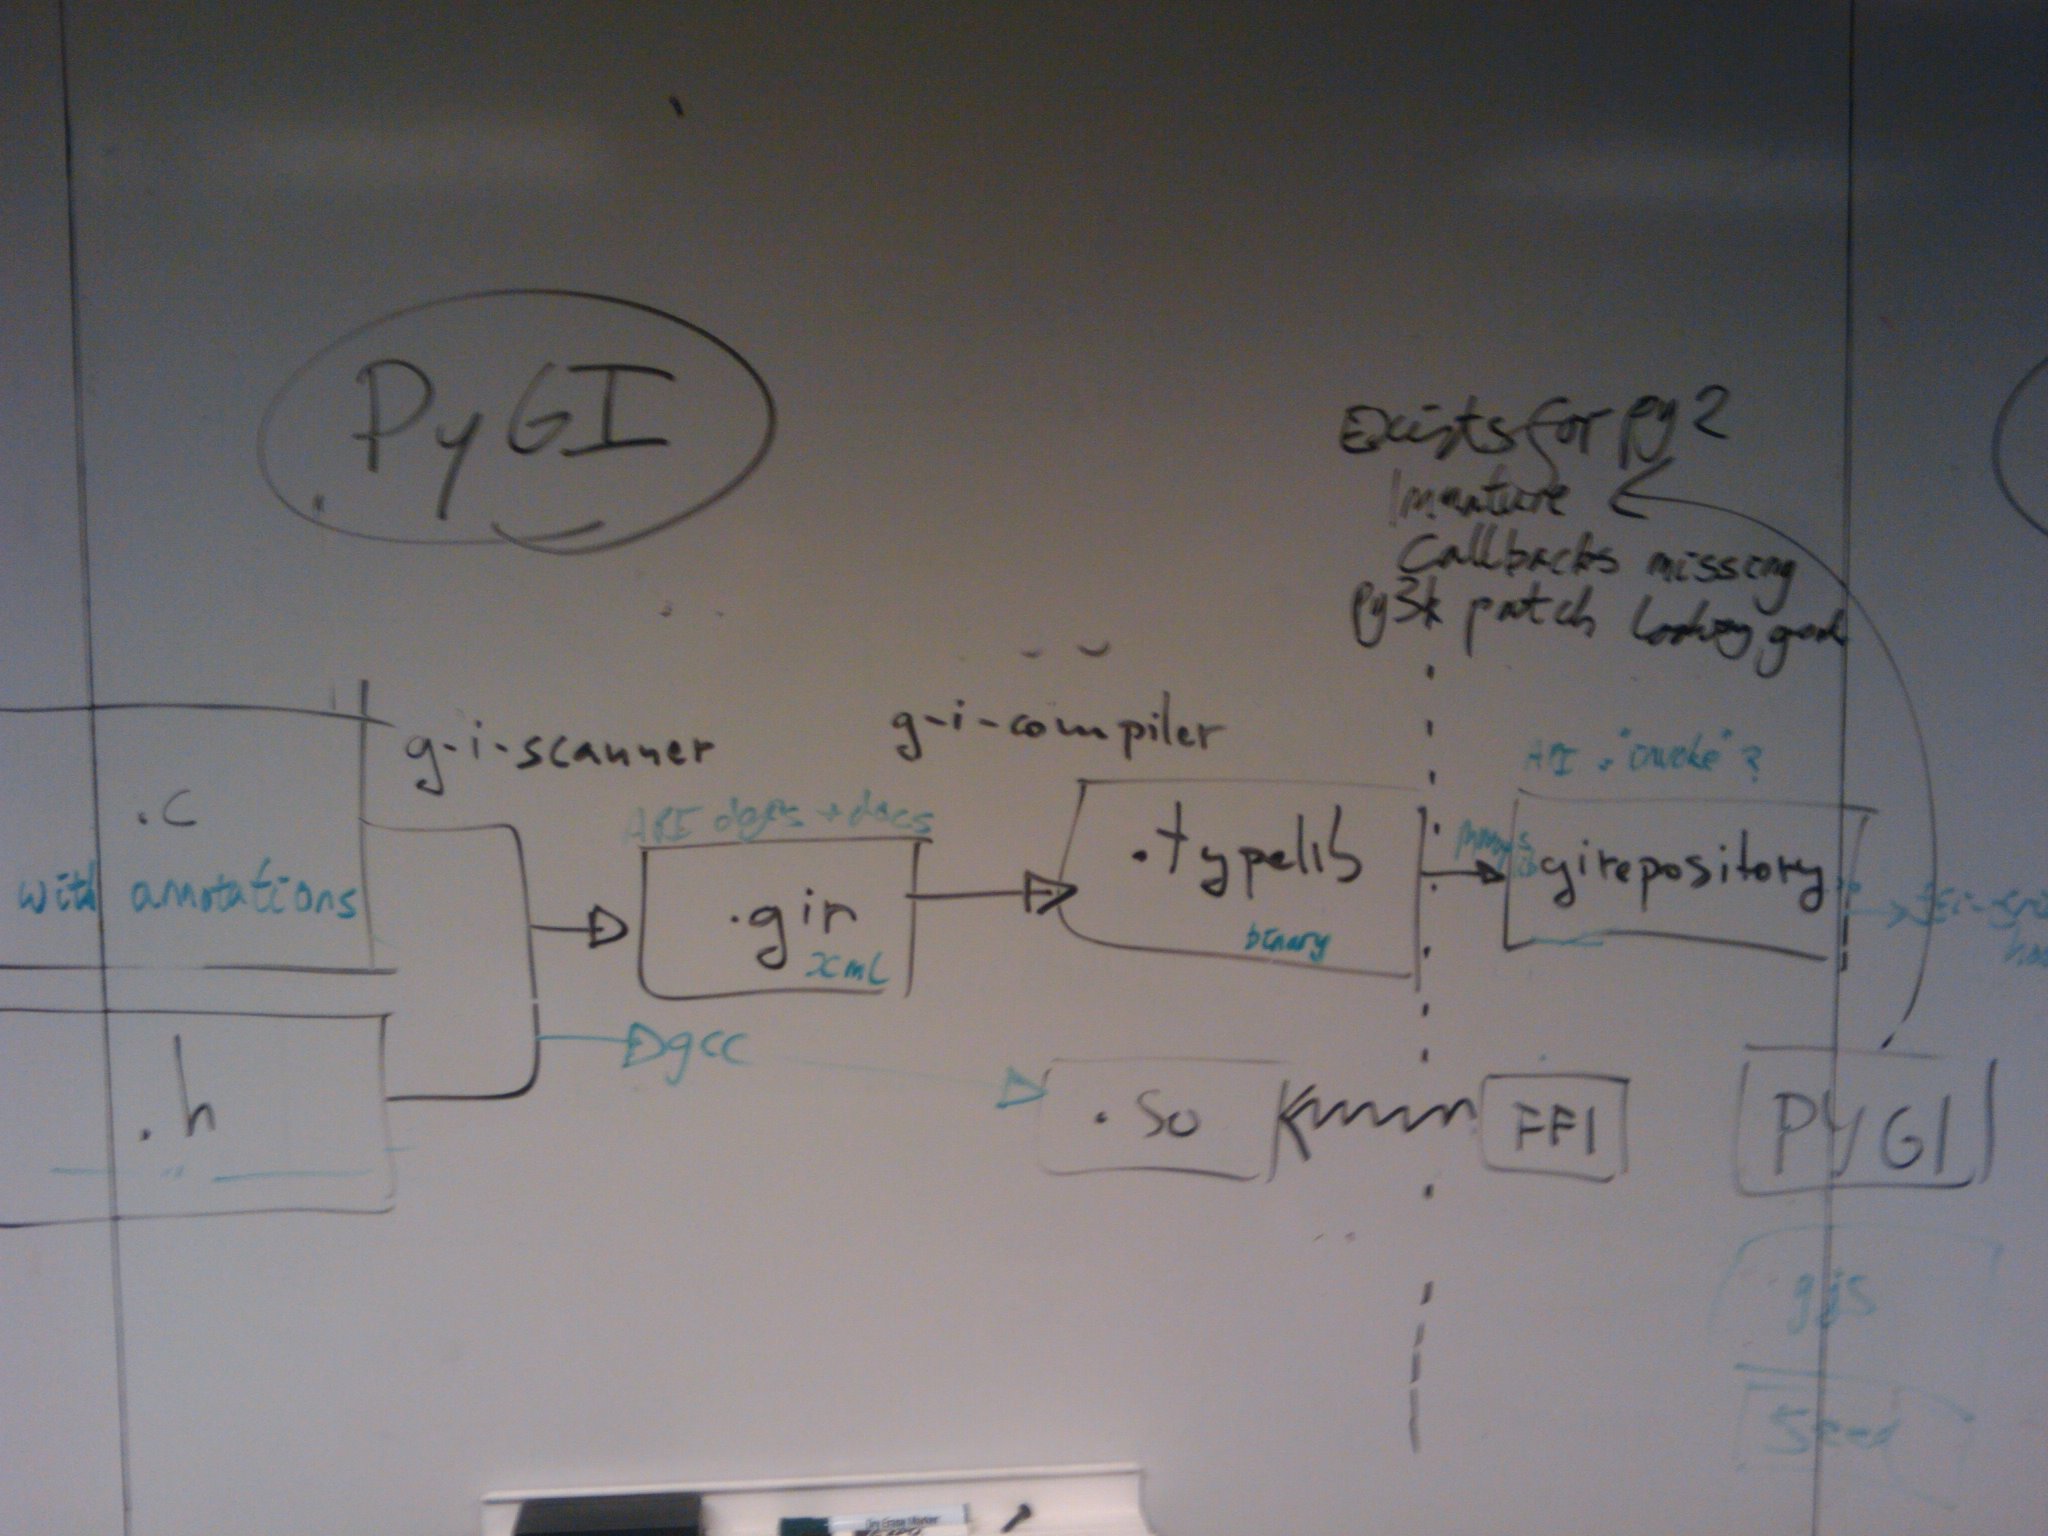 PyGI
Exists for py2
Immature
Callbacks missing
py3k patch looking good
g-i-scanner
g-i-compiler
API "invoke" ?
.c
with annotations
API defs + docs
.gir
xml
.typelib
binary
girepository
.h
gcc
.so
FFI
PYGI
gjs
Seed
Dry Erase Marker